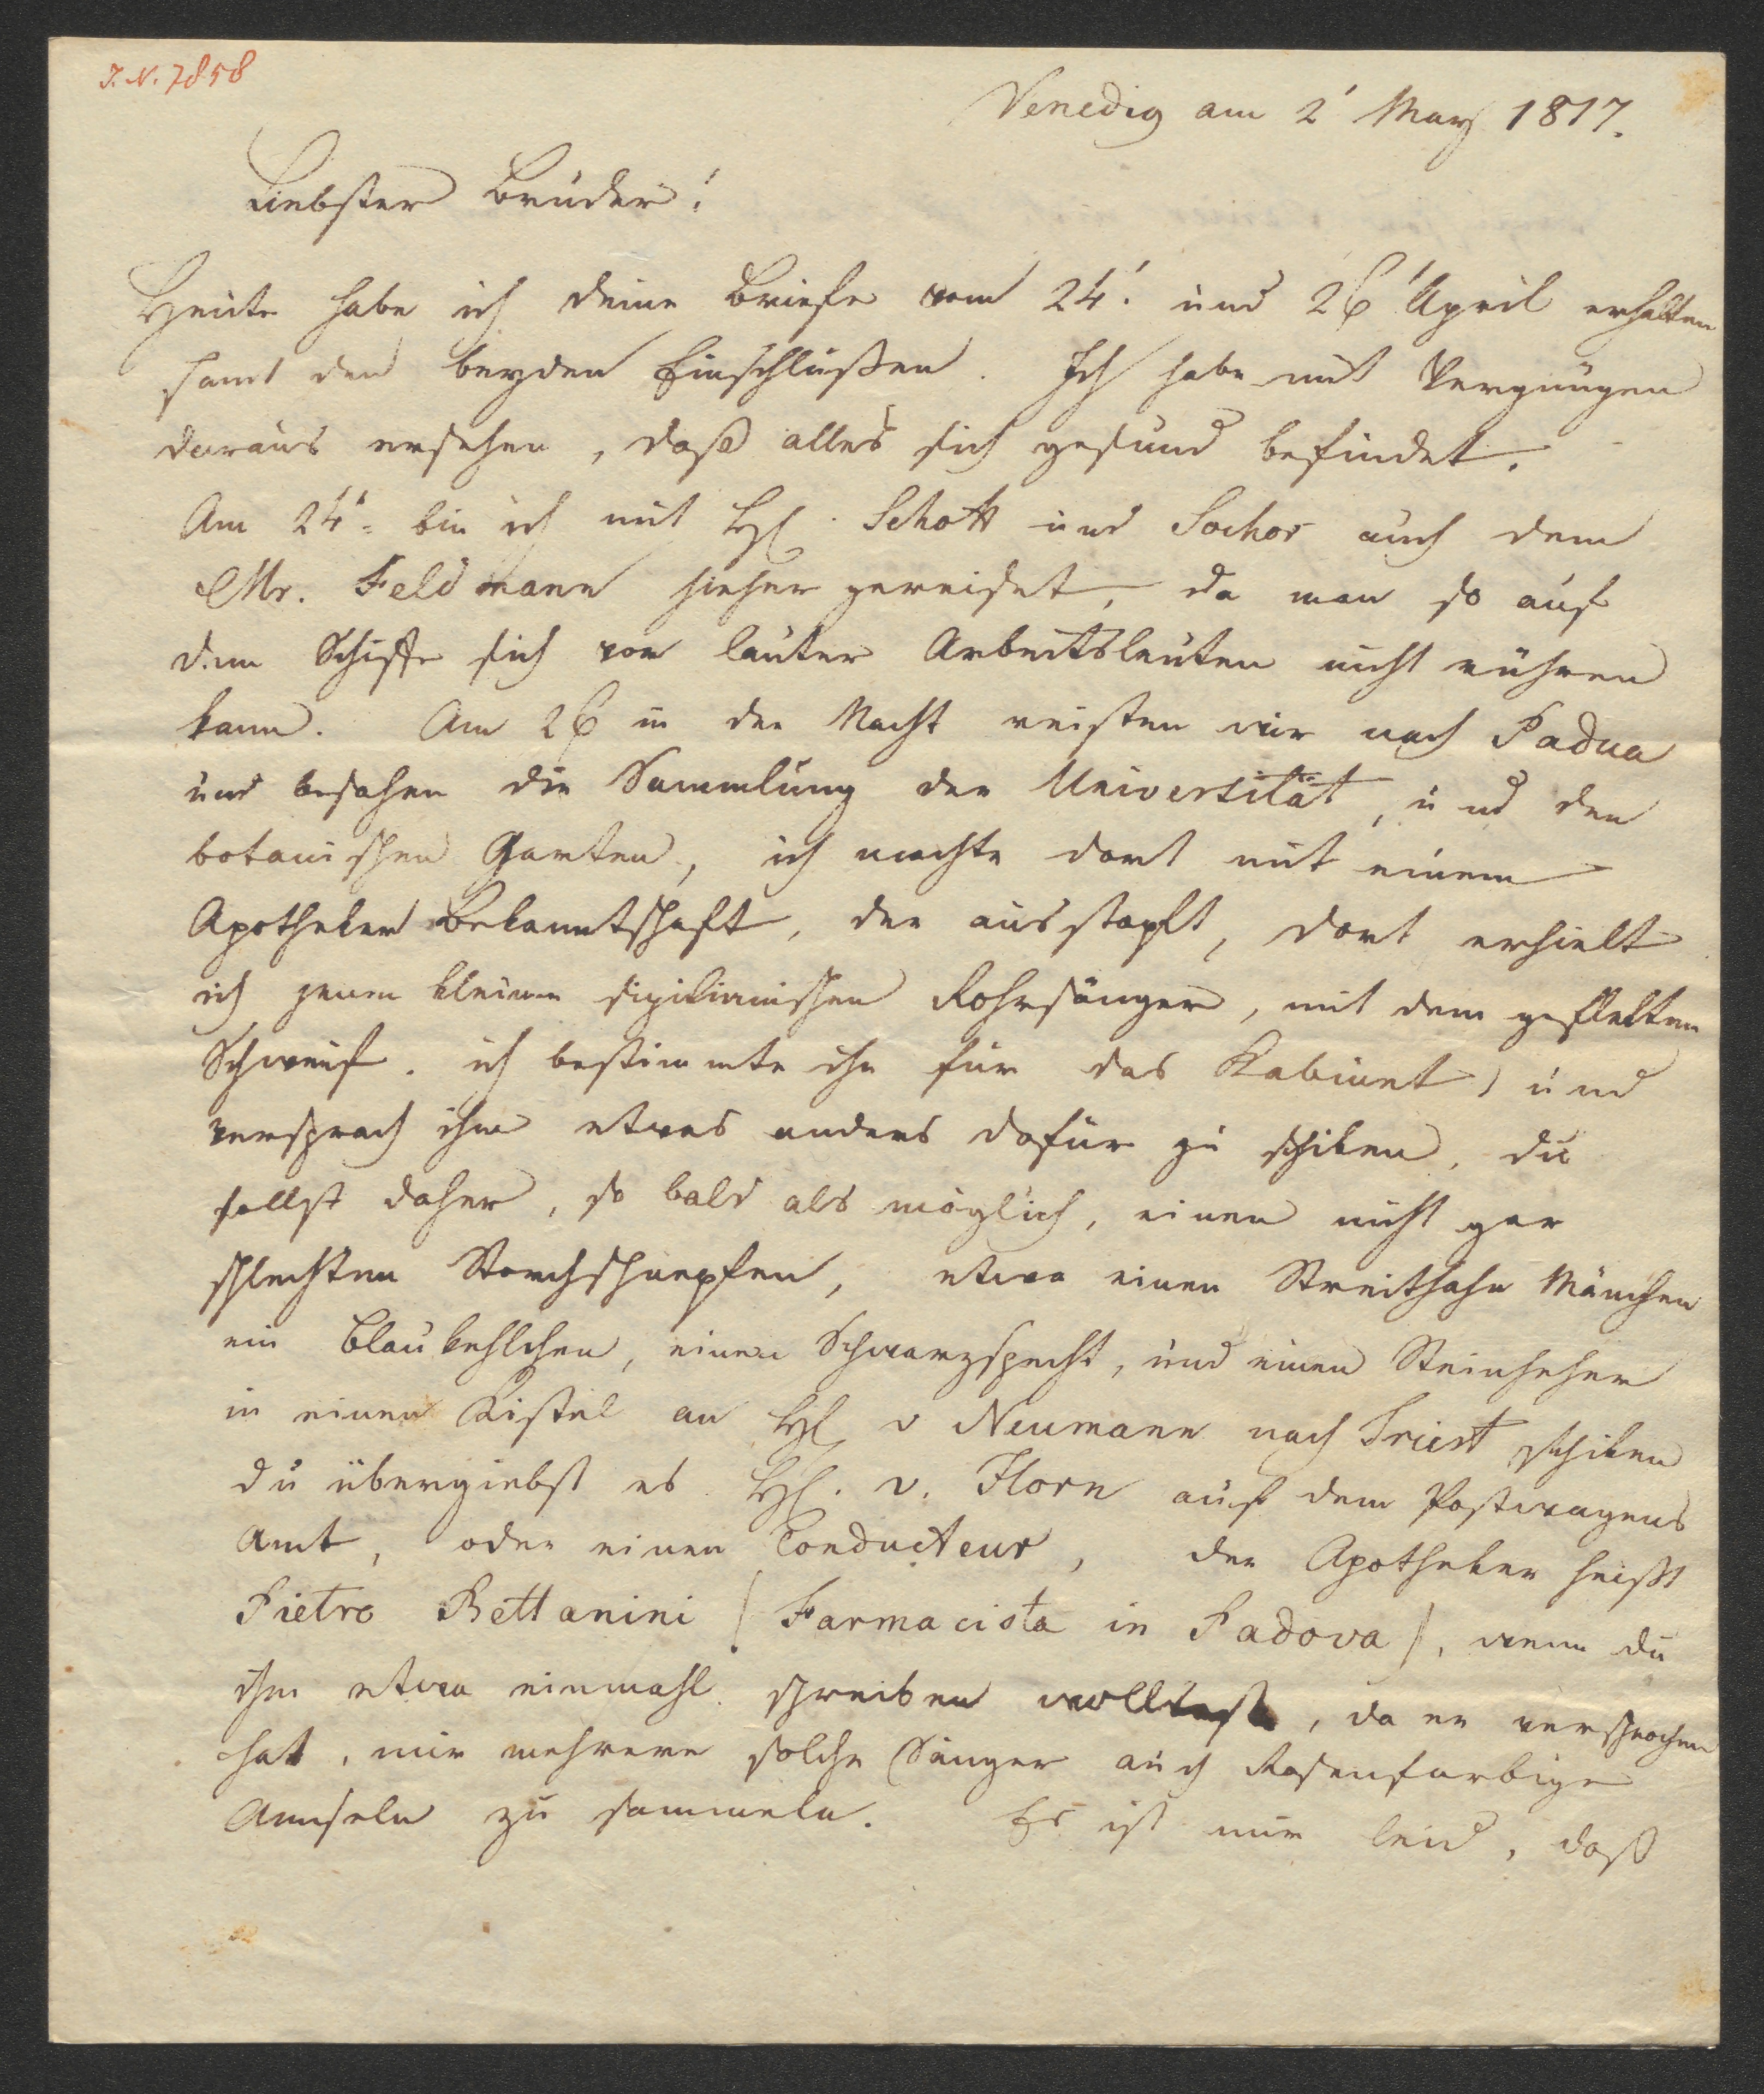 J. N. 7858
Venedig am 2' May 1817.
Liebster Bruder!
Heute habe ich deine Briefe vom 24' und 26' April erhalten
samt den beyden Einschlüßen. Ich habe mit Vergnügen
daraus ersehen, daß alles sich gesund befindet.
Am 24' bin ich mit H. Schott und Sochor auch dem
Mr. Feldmann hieher gereiset, da man so auf
dem Schiffe sich vor lauter Arbeitsleuten nicht rühren
kann. Am 26 in der Nacht reisten wir nach Padua
und besahen die Sammlung der Universität, und den
botanischen Garten, ich machte dort mit einem
Apotheker Bekanntschaft, der ausstopft, dort erhielt
ich jenen kleinen sizilianischen Rohrsänger, mit dem
Schweif. ich bestimmte ihn für das Kabinet, und
versprach ihm etwas anders dafür zu schiken, du
sollst daher, so bald als möglich, einen nicht gar
schlechten Storchschnepfen, etwa einen Streithahn Mänchen
ein Blaukehlchen, einen Schwarzspecht, und einen Steinheher
in einen Kistel an H. v Neumann nach Triest schiken
du übergiebst es H. v. Horn auf dem Postwagens
Amt, oder einen Conducteur, der Apotheker heißt
Pietro Bettanini / Farmacista in Padova /, wenn du
ihm etwa einmahl schreiben wolltest, da er versprochen
hat, mir mehrere solche Sänger auch Rosenfarbige
Amseln zu sammeln. Es ist mir leid, daß